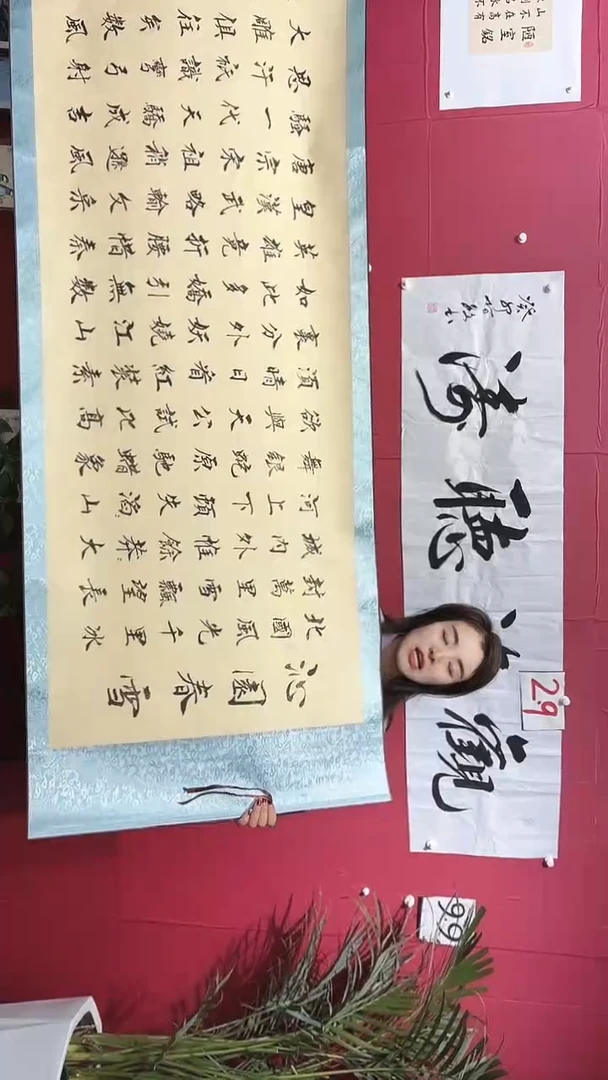 沁園春雪
北國風光千里冰
封萬里雪飄望長
城內外惟餘莽々大
河上下頓失滔々山
舞銀蛇原馳蠟象
欲與天公試比高
須晴日看紅裝素
裹分外妖嬈江山
如此多嬌引無數
英雄競折腰惜秦
皇漢武略輸文采
唐宗宋祖稍遜風
騷一代天驕成吉
思汗祇識彎弓射
大雕俱往矣數風
觀海聽濤
癸卯
2.9
9.9
陋室銘
山不在高